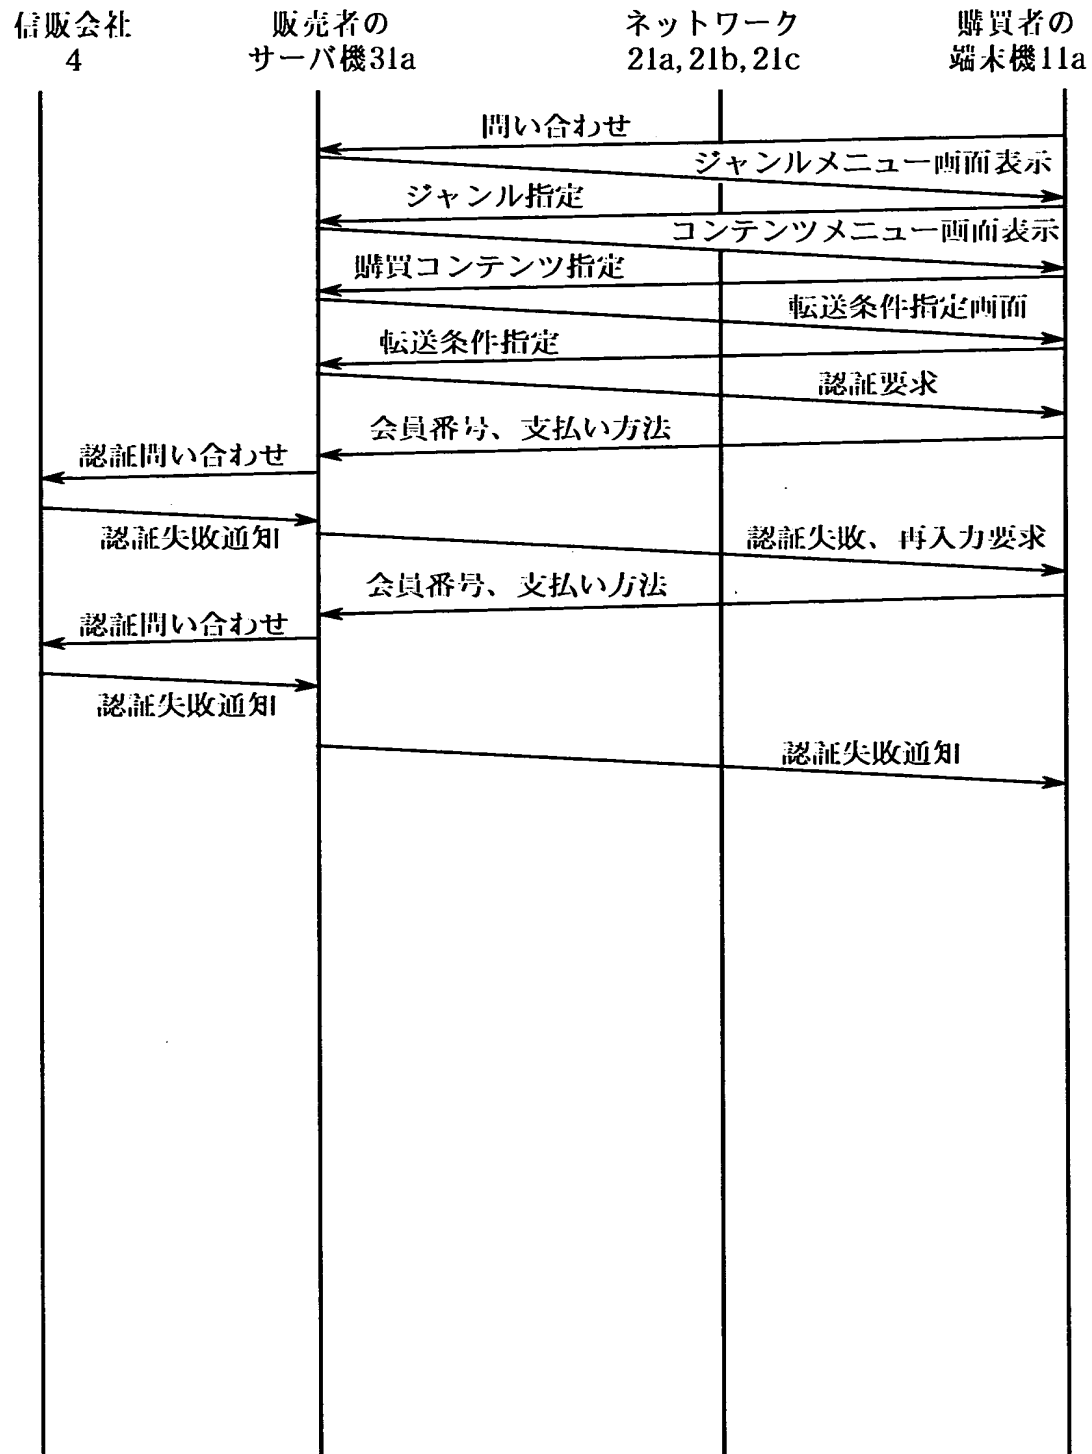 信販会社
4
販売者の
サーバ機31a
ネットワーク
21a,21b,21c
購買者の
端末機11a
問い合わせ
ジャンルメニュー画面表示
ジャンル指定
コンテンツメニュー画面表示
購買コンテンツ指定
転送条件指定画面
転送条件指定
認証要求
会員番号、支払い方法
認証問い合わせ
認証失敗通知
認証失敗、再入力要求
会員番号、支払い方法
認証問い合わせ
認証失敗通知
認証失敗通知